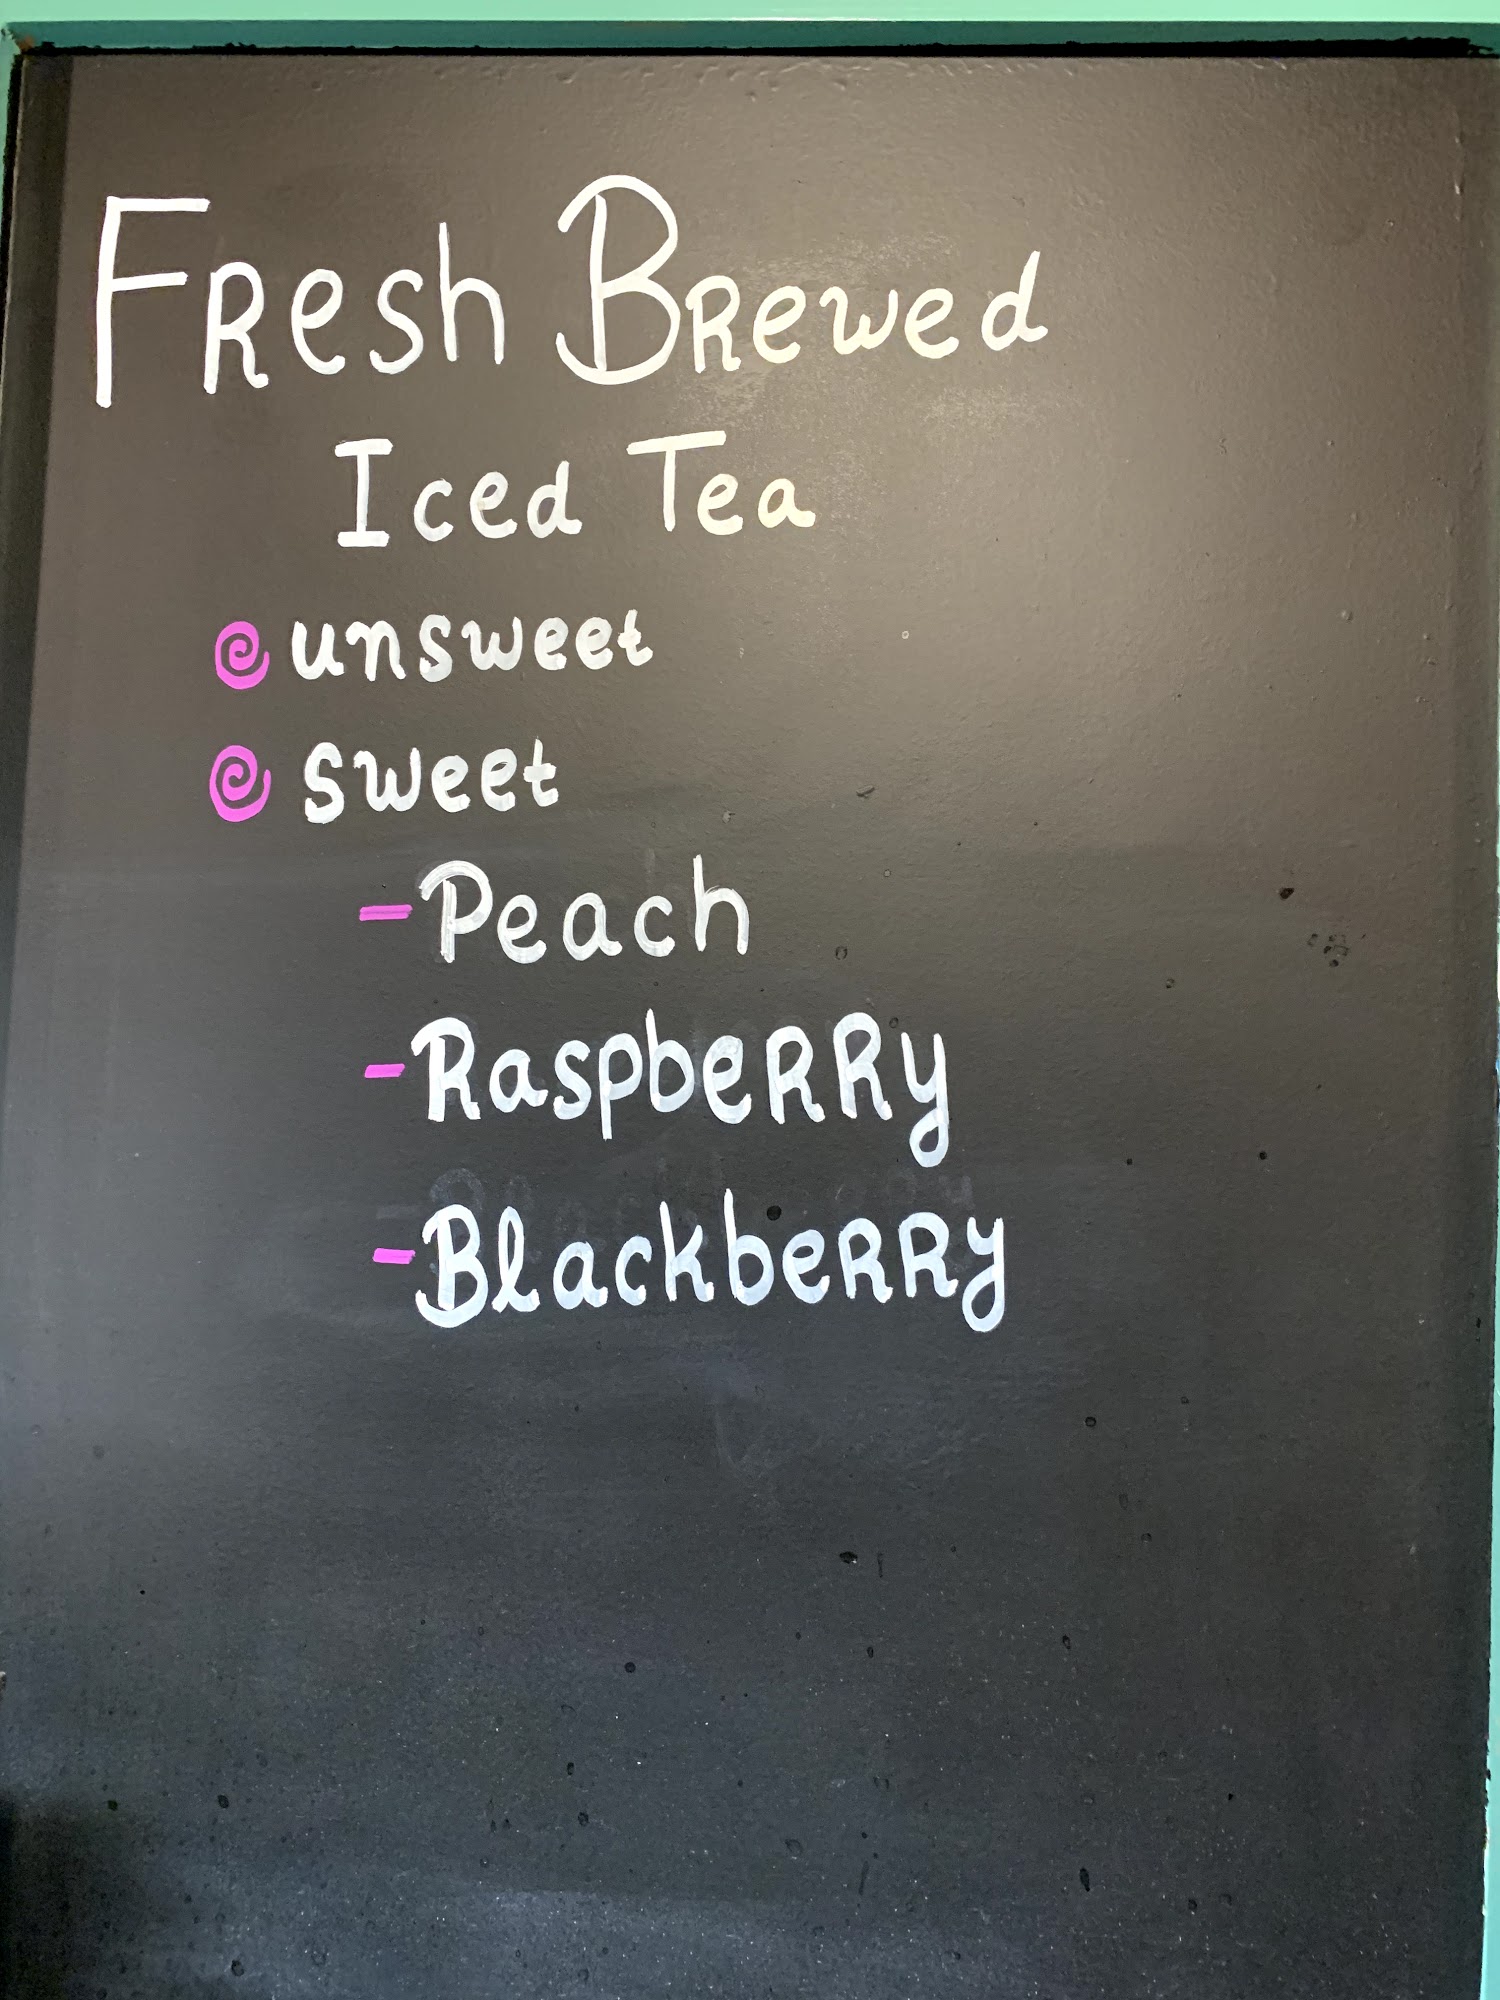 Fresh Brewed
Iced Tea
unsweet
sweet
- Peach
- Raspberry
- Blackberry